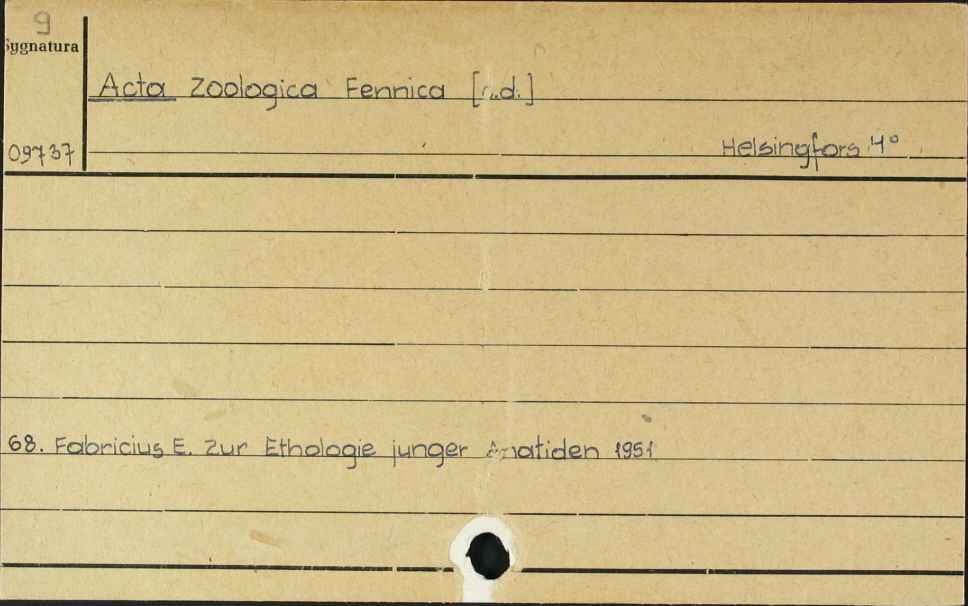 9
Sygnatura
Acta Zoologica Fennica [c.d.]
09737
Helsingfors 4°
68. Fabricius E. Zur Ethologie junger Anatiden 1951